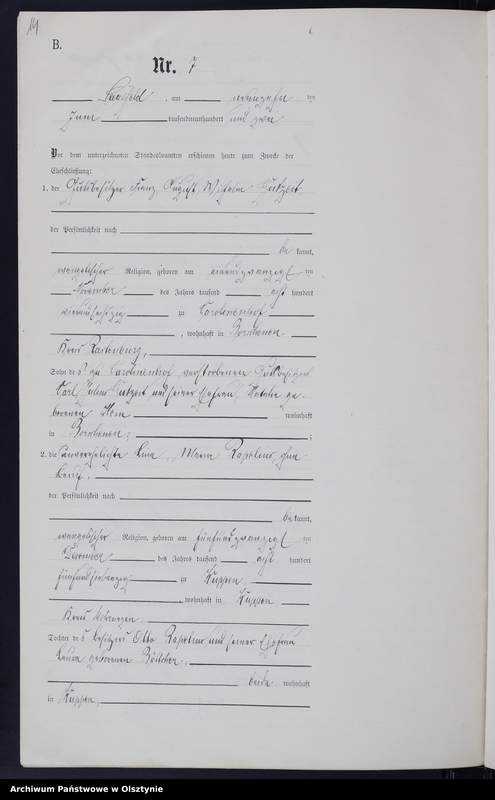 14
B.
Nr. 7
Saalfeld, am neunzehn ten
Juni tausendneunhundert und zwei
Vor dem unterzeichneten Standesbeamten erschienen heute zum Zwecke der
Eheschließung:
1. der Gutsbesitzer Franz August Wilhelm Gutzeit,
der Persönlichkeit nach
be kannt,
evangelischer Religion, geboren am einundzwanzigsten
November des Jahres tausend acht hundert
zu Carolinenhof
, wohnhaft in
Kreis Rastenburg,
Sohn des zu Carolinenhof verstorbenen Gutsbesitzers
Carl Julius Gutzeit und seiner Ehefrau Natalie ge-
borenen wohnhaft
in ;
2. die unverehelichte Maria ohne
Beruf,
der Persönlichkeit nach
be kannt,
evangelischer Religion, geboren am fünfundzwanzigsten
Dezember des Jahres tausend acht hundert
fünfundsiebenzig zu Kuppen
, wohnhaft in Kuppen
Kreis Mohrungen
Tochter des Besitzers Otto und seiner Ehefrau
geborenen Böttcher,
beide wohnhaft
in Kuppen,
Archiwum Państwowe w Olsztynie